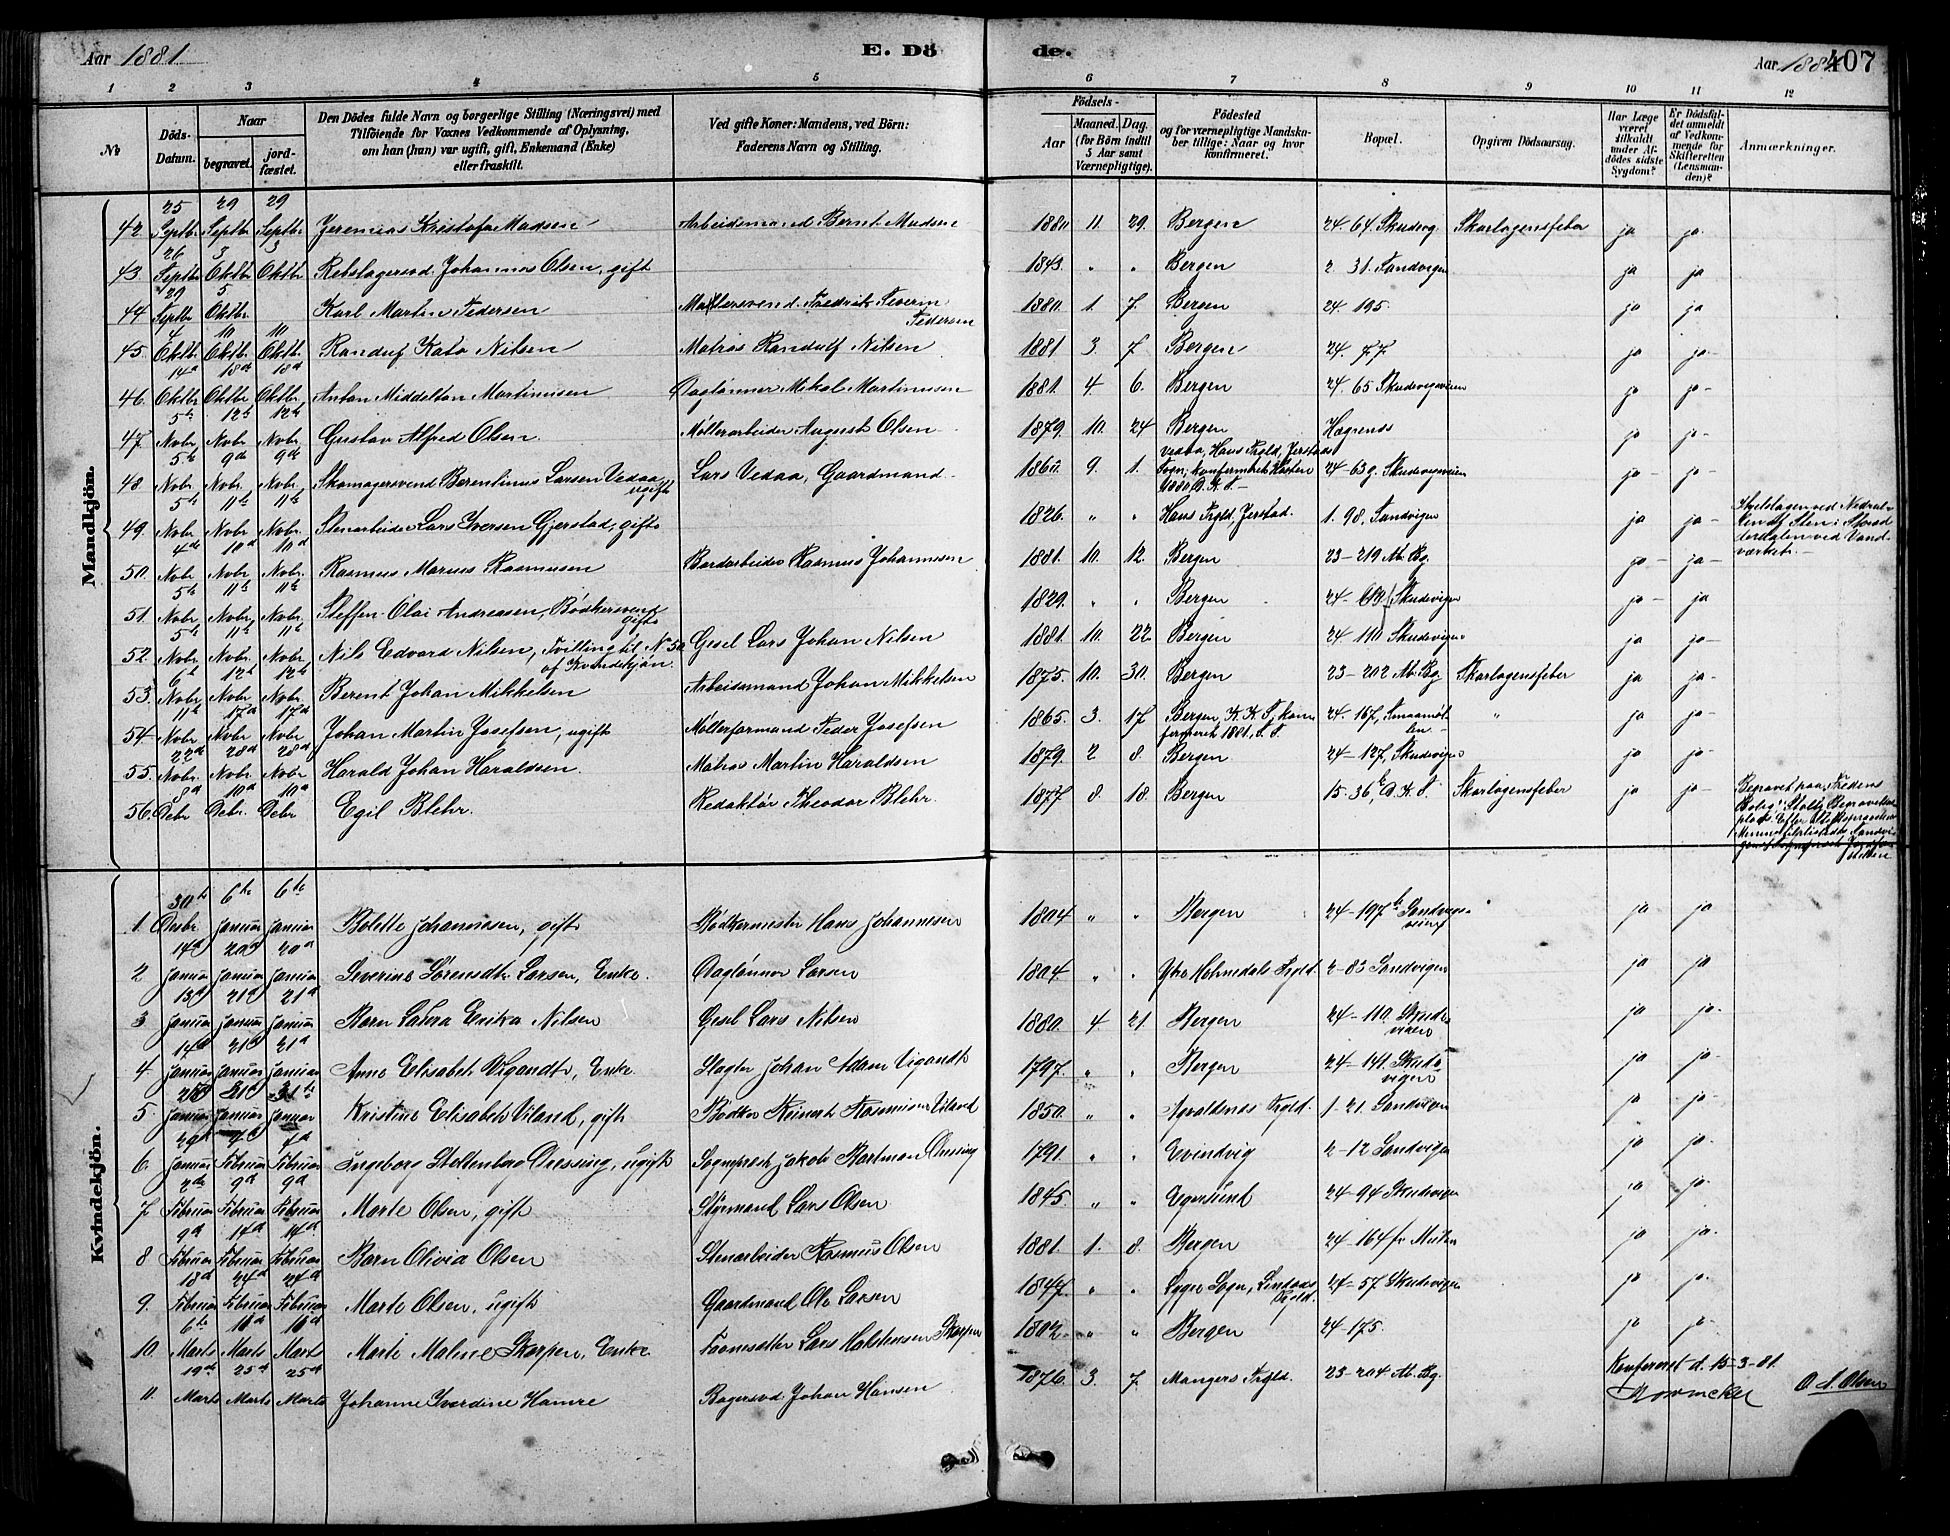 Aar 1881
E. Dö
de.
Aar 1881
407
1 2 3 4 5 6 7 8 9 10 11 12
№
Döds-Datum.
Naar
begravet.
jord-fæstet.
Den Dödes fulde Navn og borgerlige Stilling (Næringsvei) med
Tilföiende for Voxnes Vedkommende af Oplysning,
om han (hun) var ugift, gift, Enkemand (Enke)
eller fraskilt.
Ved gifte Koner: Mandens, ved Börn:
Faderens Navn og Stilling.
Födsels-
Aar
Maaned. Dag.
(for Börn indtil
5 Aar samt
Værnepligtige).
Födested
og for værnepligtige Mandskaber tillige: Naar og hvor
konfirmeret.
Bopæl.
Opgiven Dödsaarsag.
Har Læge
været
tilkaldt
under Afdödes sidste
Sygdom?
Er Dödsfaldet anmeldt
af Vedkommende for
Skifteretten
(Lensmanden)?
Anmærkninger.
Mandkjön.
42. 25 Septbr 29 Septbr 29 Septbr Jeremias Kristofer Madsen Arbeidsmand Bernt Madsen 1880 11. 29. Bergen 24. 64 Skudevig Skarlagensfeber ja ja
43. 26 Septbr 3 Oktbr 3 Oktbr Rebslagersvd Johannes Olsen, gift 1843. " " Bergen 2 31. Sandvigen ja ja
44 29 Septbr 5 Oktbr. Karl Martin Pedersen Fredrik Severin Pedersen 1880. 1. 7. Bergen 24. 195. ja ja
45. 4 Oktbr. 10 Oktbr. 10 Oktbr. Randulf Kato Nilsen Matros Randulf Nilsen 1881 3. 7 Bergen 24. 77 ja ja
46. 14d Oktbr 18d Oktbr 18d Oktbr. Anton Middelton Martinusen Daglönner Mikal Martinusen 1881. 4. 6. Bergen 24. 65 Skudevigsveien ja ja
47. 5te Novbr 12te Novbr 12te Novbr Gustav Alfred Olsen. Möllerarbeider August Olsen 1879. 10. 24 Bergen Hægrenes ja ja
48. 5te Novbr 9de Novbr. 9de Novbr Skomagersvend Berentinus Larsen Vedaa, ugift Lars Vedaa, Gaardmand. 1860. 9. 1. Vedaa, Haus Prgld, Jerstad Sogn; konfirmeret 1880 D. K. S. 24-63g. Skudevigsveien ja ja
49. 5te Novbr 11te Novbr. 11te Novbr. Stenarbeider Lars Iversen Gjerstad, gift 1826. " " Haus Prgld, Jerstad. 1. 98, Sandvigen ja ja Ihjelslagen ved Nedrulten af Sten i Skrædderdalen ved Vandværket.
50. 4de Novbr 10d Novbr 10d Novbr. Rasmus Marius Rasmusen Bordarbeider Rasmus Johannesen 1881. 10. 12. Bergen 23-219 Mb. Bg. ja ja
51. 5te Novbr 11te Novbr. 11te Novbr. Steffen Olai Andreasen, Bödkersvend gift 1829. " " Bergen Skudevigen ja ja
52 5te Novbr. 11te Novbr. 11te Novbr. Nils Edvard Nilsen, Tvilling til N. 50 af Kvindekjön. Gesel Lars Johan Nilsen 1881. 10. 22 Bergen 24-110 Skudevigen ja ja
53. 6te Novbr. 12d Novbr. 12te Novbr. Berent Johan Mikkelsen Arbeidsmand Johan Mikkelsen 1875. 10. 30. Bergen 23-202 Mb. Bg. Skarlagensfeber ja ja
54 11te Novbr 17d Novbr 17d Novbr Johan Martin Josefsen, ugift Möllerformand Peder Josefsen 1865. 3. 17 Bergen, K. K. S, konfirmeret 1881, S. S. 24. 167, Smaamöllen " ja ja
55. 22d Novbr. 28d Novbr. 28d Novbr. Harald Johan Haraldsen. Matros Martin Haraldsen 1879. 2 8. Bergen 24-127, Skudevigen ja ja
56. 8d Debr 10d Debr. 10d Debr Egil Blehr. Redaktör Theodor Blehr. 1877. 8. 18. Bergen 15. 36, D. K. S. Skarlagensfeber ja ja Begravet paa Fredens Bolig i Stolz Begravelsesplads.
Kvindekjön.
1. 30te Decbr. 6te Januar 6te Januar Bolette Johannesen, gift Bödkermester Hans Johannesen 1804 " " Bergen 24-197 Sandvigsveien ja ja
2 14d Januar 20d Januar 20d Januar Severine Sörensdtr Larsen, Enke. Daglönner Larsen 1804. " " Ytre Holmedals Prgld. 2-83 Sandvigen ja ja
3 13d Januar 21d Januar 21d Januar Barn Laura Erika Nilsen Gesel Lars Nilsen 1880. 4. 21. Bergen 24-110. Skudevigen ja ja
4 14d Januar 21d Januar 21d Januar Anne Elisabet Vigandt, Enke Slagter Johan Adam Vigandt 1797. " " Bergen 24-141. Skudevigen ja ja
5. Januar Januar 31te Januar Kristine Elisabeth Viland, gift Bödker Reinert Rasmusen Viland 1850. " " Prgld. 1-21. Sandvigen ja ja
6. 29de Januar 7d Februar 7d Februar Ingeborg Stoltenberg Dressing, ugift Sognepræst Jakob Hartman Dressing 1791. " " Evindvig 2-12 Sandvigen ja ja
7 2de Februar 9d Februar 9d Februar Marte Olsen, gift Styrmand Lars Olsen 1845. " " Egersund 24-94 Skudevigen ja ja
8 9d Februar 14d Februar 14d Februar Barn Olivia Olsen Stenarbeider Rasmus Olsen 1881. 1. 8. Bergen 24-164 ja ja
9. 18d Februar 24d Februar 24d Februar Marte Olsen, ugift Gaardmand Ole Larsen 1847. " " Sogn, Lindaas Prgld. 24-57 Skudevigen ja ja
10. 6te Marts 10d Marts 10d Marts Marte Malene Skorpen, Enke Lars Holstensen Skorpen 1802. " " Bergen 24-175. ja ja
11. 19de Marts 25d Marts 25d Marts Johanne Iverdine Hamre Bagersvd Johan Hansen 1876. 3. 7. Mangers Prgld. 23-204 Mb. Bg.
Konfereret d. 15-3-81.